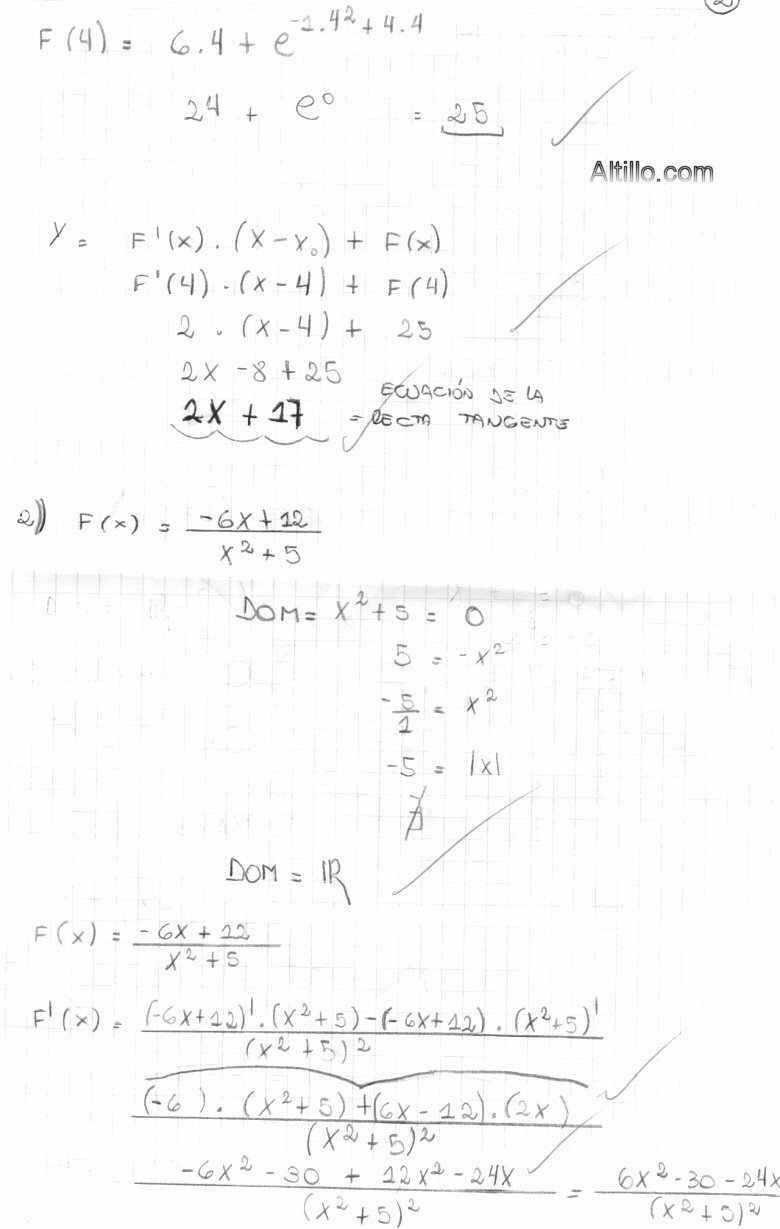 2
F(4) = 6.4 + e^{-1.4² + 4.4}
24 + e⁰ = 25
Altillo.com
Y = F'(x) . (x - x₀) + F(x)
F'(4) . (x - 4) + F(4)
2 . (x - 4) + 25
2x - 8 + 25
2x + 17 = ECUACIÓN DE LA RECTA TANGENTE
2) F(x) = \frac{-6x + 12}{x² + 5}
DOM = x² + 5 = 0
5 = -x²
-\frac{5}{1} = x²
-5 = |x|
∄
DOM = ℝ
F(x) = \frac{-6x + 12}{x² + 5}
F'(x) = \frac{(-6x + 12)' . (x² + 5) - (-6x + 12) . (x² + 5)'}{(x² + 5)²}
\frac{(-6) . (x² + 5) + (6x - 12) . (2x)}{(x² + 5)²}
\frac{-6x² - 30 + 12x² - 24x}{(x² + 5)²} = \frac{6x² - 30 - 24x}{(x² + 5)²}